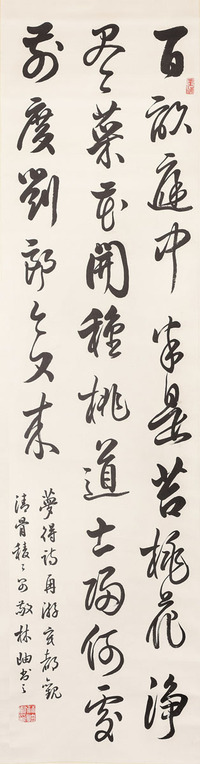 百畝庭中半是苔桃花淨
盡菜花開種桃道士歸何處
前度劉郎今又來
夢得詩再游玄都觀
清骨稜〻可敬林岫书之